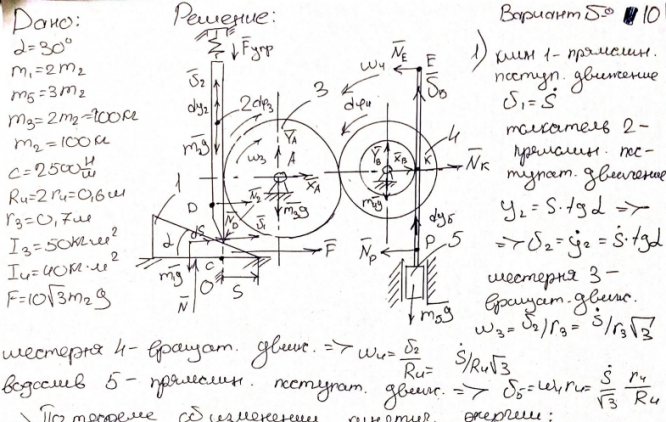 Дано:
α=30°
m₁=2m₂
m₅=3m₂
m₃=2m₂=200кг
m₂=100кг
c=2500 н/м
R₄=2r₄=0,6м
r₃=0,7м
I₃=50кг·м²
I₄=40кг·м²
F=10√3m₂g
Решение:
F̅упр
δ̅₂
dy₂
2dφ₃
3
ω₃
A
Y̅A
X̅A
m̅₃g
m̅₂g
D
N̅₂
N̅D
δ̅₁
1
α
dS
m̅g
N̅
O
C
S
F̅
ω₄
dφ₄
N̅E
E
δ̅B
4
Y̅B
X̅B
K
N̅K
m̅₄g
dy₅
P
N̅p
5
m̅₅g
Вариант 5 10
1) клин 1- прямолин.
поступ. движение
δ₁=Ṡ
толкатель 2-
прямолин. пос-
тупат. движение
y₂=S·tgα =>
=> δ₂=ẏ₂=Ṡ·tgα
шестерня 3-
вращат. движ.
ω₃=δ₂/r₃=Ṡ/r₃√3
шестерня 4- вращат. движ. => ω₄=δ₂/R₄=Ṡ/R₄√3
водослив 5- прямолин. поступат. движ. => δ₅=ω₄r₄=Ṡ/√3 r₄/R₄
По теореме об изменении кинетич. энергии: